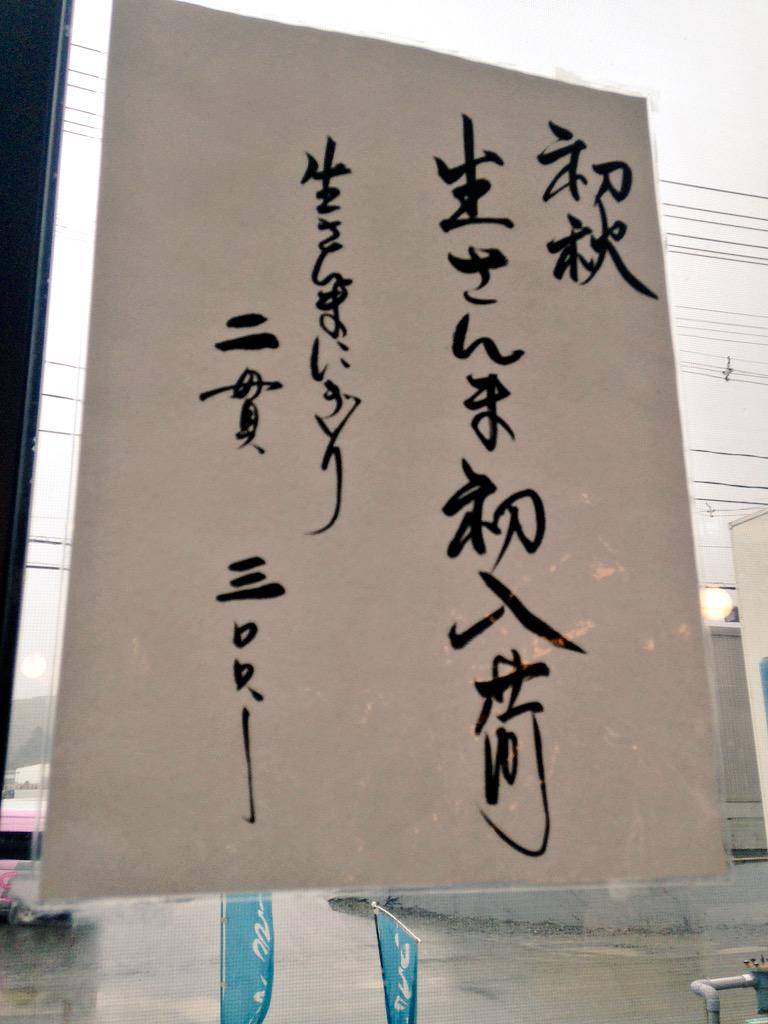 初秋
生さんま初入荷
生さんまにぎり
二貫 三〇〇、ー